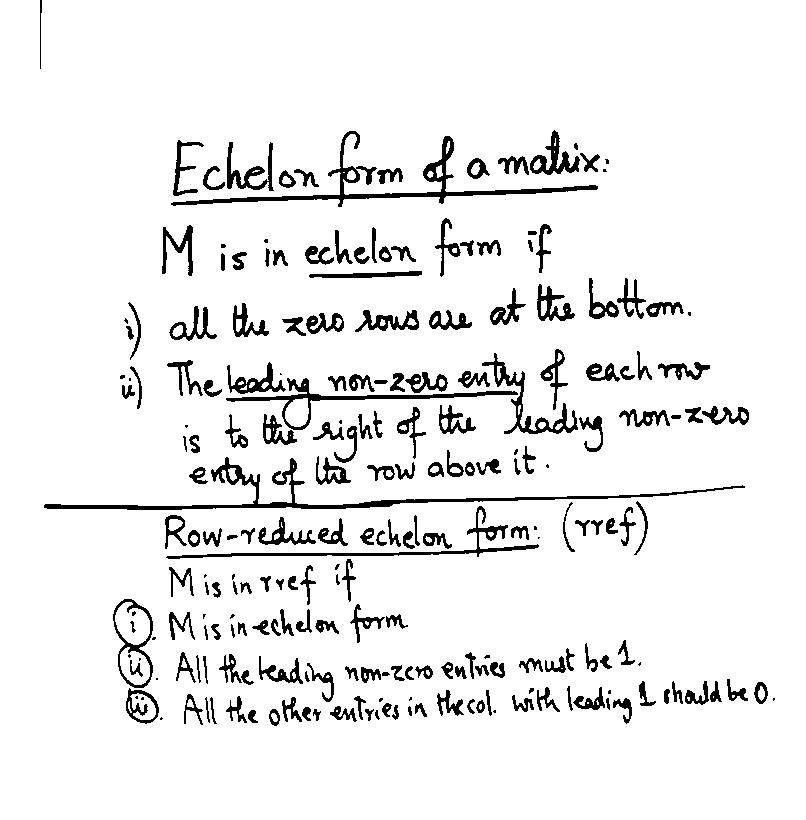 Echelon form of a matrix:
M is in echelon form if
i) all the zero rows are at the bottom.
ii) The leading non-zero entry of each row
is to the right of the leading non-zero
entry of the row above it.
Row-reduced echelon form: (rref)
M is in rref if
i. M is in echelon form
ii. All the leading non-zero entries must be 1.
iii. All the other entries in the col. with leading 1 should be 0.